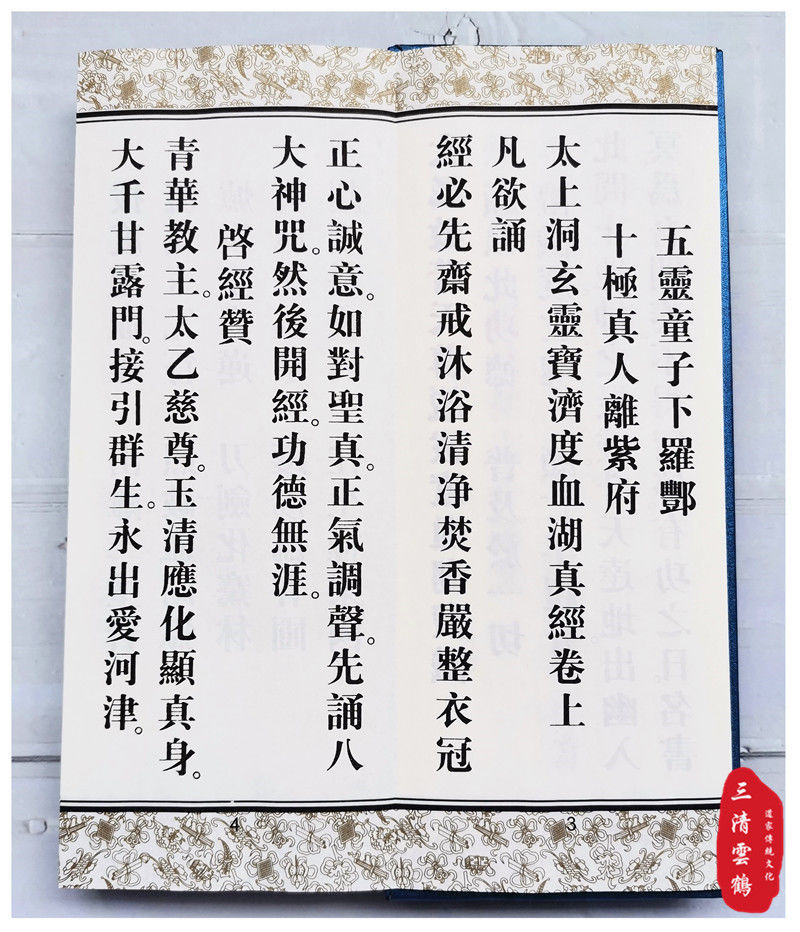 五靈童子下羅酆
十極真人離紫府
太上洞玄靈寶濟度血湖真經卷上
凡欲誦
經必先齋戒沐浴清净焚香嚴整衣冠
3
正心誠意。如對聖真。正氣調聲。先誦八
大神咒。然後開經。功德無涯。
啓經贊
青華教主。太乙慈尊。玉清應化顯真身。
大千甘露門。接引群生。永出愛河津。
4
三清雲鶴
道家傳統文化